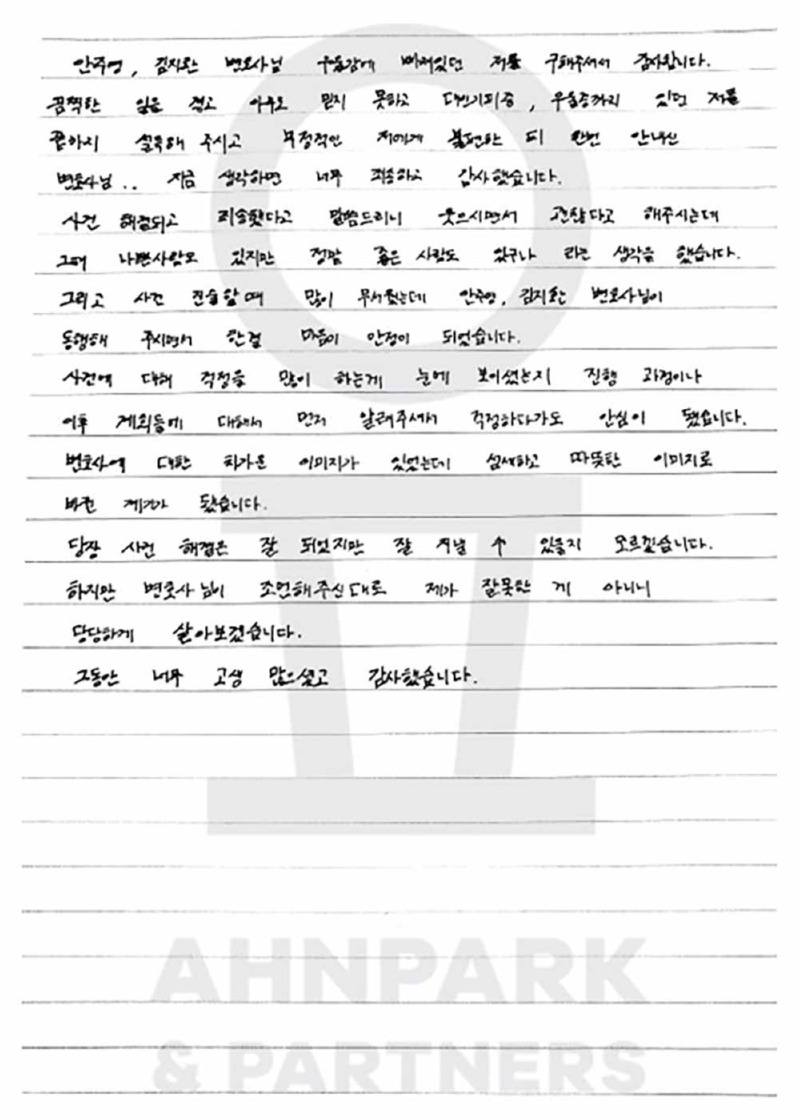 안주영, 김지완 변호사님 우울감에 빠져있던 저를 구해주셔서 감사합니다.
끔찍한 일을 겪고 아무도 믿지 못하고 대인기피증, 우울증까지 있던 저를
끝까지 설득해 주시고 부정적인 저에게 불편한 티 한번 안내신
변호사님.. 지금 생각하면 너무 죄송하고 감사했습니다.
사건 해결되고 죄송했다고 말씀드리니 웃으시면서 괜찮다고 해주시는데
그때 나쁜사람도 있지만 정말 좋은 사람도 있구나 라는 생각을 했습니다.
그리고 사건 진술할때 많이 무서웠는데 안주영, 김지완 변호사님이
동행해 주시면서 한결 마음이 안정이 되었습니다.
사건에 대해 걱정을 많이 하는게 눈에 보이셨는지 진행 과정이나
이후 계획들에 대해서 먼저 알려주셔서 걱정하다가도 안심이 됐습니다.
변호사에 대한 차가운 이미지가 있었는데 섬세하고 따뜻한 이미지로
바뀐 계기가 됐습니다.
당장 사건 해결은 잘 되었지만 잘 지낼 수 있을지 모르겠습니다.
하지만 변호사님이 조언해주신대로 제가 잘못한 게 아니니
당당하게 살아보겠습니다.
그동안 너무 고생 많으셨고 감사했습니다.
AHNPARK
& PARTNERS